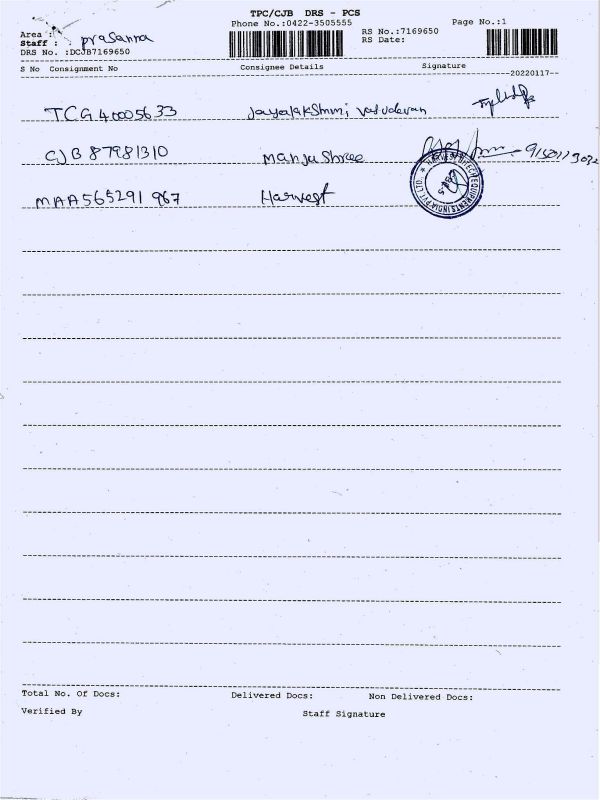 TPC/CJB DRS - PCS
Phone No.:0422-3505555
Page No.:1
Area :
Staff : prasanna
DRS No. :DCJB7169650
RS No.:7169650
RS Date:
S No Consignment No Consignee Details Signature
--20220117--
TCG 40005633 Jayalakshmi vasudevan
CJB 87981310 Manju Shree
MAA565291 967 Harvest
Total No. Of Docs: Delivered Docs: Non Delivered Docs:
Verified By Staff Signature